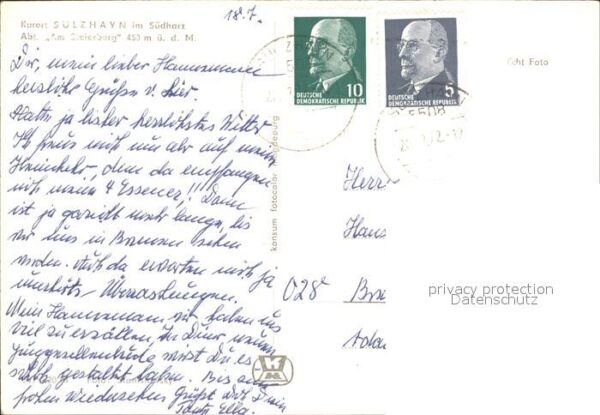 Kurort SÜLZHAYN im Südharz
Abt. „Am Steierberg" 450 m ü. d. M.
18.7.
Dir, mein lieber Hannesmann
herzliche Grüße v. hier
Hatte ja bisher herrlichstes Wetter
Ich freue mich nun aber auf meine
Heimkehr, denn da empfangen
mich meine 4 Essener!!! Dann
ist ja gezielt mehr lange, bis
wir uns in Bremen sehen
werden. Auch da erwarten mich ja
Überraschungen.
Mein Hannesmann, wir haben uns
viel zu erzählen, In Deiner neuen
Junggesellenbude wirst Du es
gestaltet haben. Bis zum
frohen Wiedersehen grüßt Dich Dein
Tante Ella.
konsum fotocolor magdeburg
10
DEUTSCHE
DEMOKRATISCHE REPUBLIK
5
DEUTSCHE
DEMOKRATISCHE REPUBLIK
Echt Foto
Herrn
Hans
028
privacy protection
Datenschutz